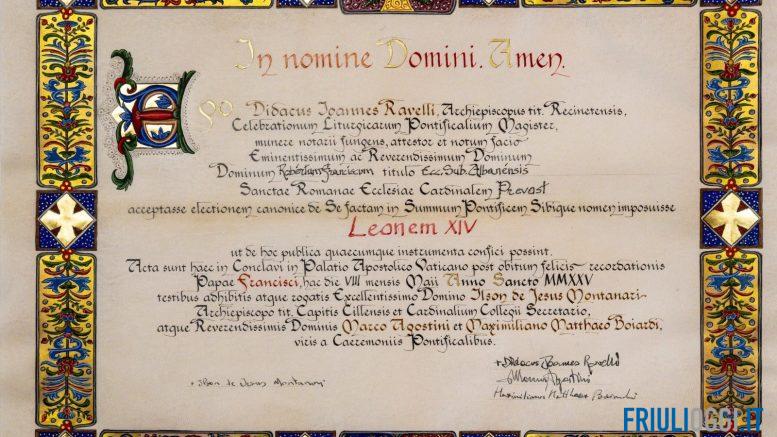 In nomine Domini. Amen.
Ego Didacus Ioannes Ravelli, Archiepiscopus tit. Recinetensis,
Celebrationum Liturgicarum Pontificalium Magister,
munere notarii fungens, attestor et notum facio
Eminentissimum ac Reverendissimum Dominum
Dominum Robertum Franciscum titulo Ecc. Sub. Albanensis
Sanctae Romanae Ecclesiae Cardinalem Prevost
acceptasse electionem canonice de Se factam in Summum Pontificem Sibique nomen imposuisse
Leonem XIV
ut de hoc publica quaecumque instrumenta confici possint.
Acta sunt haec in Conclavi in Palatio Apostolico Vaticano post obitum felicis recordationis
Papae Francisci, hac die VIII mensis Maii Anno Sancto MMXXV
testibus adhibitis atque rogatis Excellentissimo Domino Ilson de Jesus Montanari
Archiepiscopo tit. Capitis Cillensis et Cardinalium Collegii Secretario,
atque Reverendissimis Dominis Marco Agostini et Maximiliano Matthaeo Boiardi,
viris a Caeremoniis Pontificalibus.
+ Didacus Ioannes Ravelli
+ Ilson de Jesus Montanari
Marcus Agostini
Maximilianus Matthaeus Boiardi
FRIULIOGGI.IT